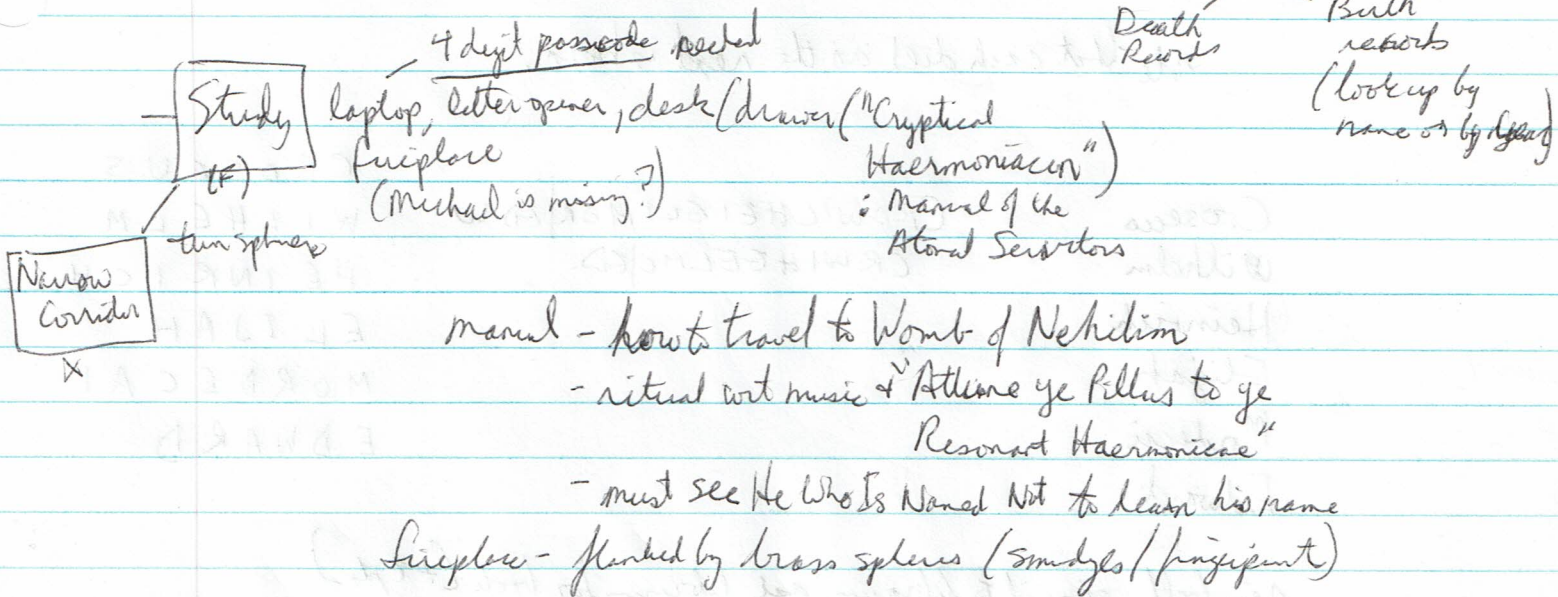 Death Records
Birth records
(look up by name or by year)
4 digit passcode needed
Study
laptop, letter opener, desk/drawer ("Cryptical Haermoniacum")
fireplace
(Michael is missing?)
: Manual of the
Atonal Servitors
(F)
turn spheres
Narrow
Corridor
X
manual - how to travel to Womb of Nehilim
- ritual w/ music & "Attune ye Pillars to ye
Resonant Haermonicae"
- must see He Who Is Named Not to learn his name
fireplace - flanked by brass spheres (smudges/fingerprint)